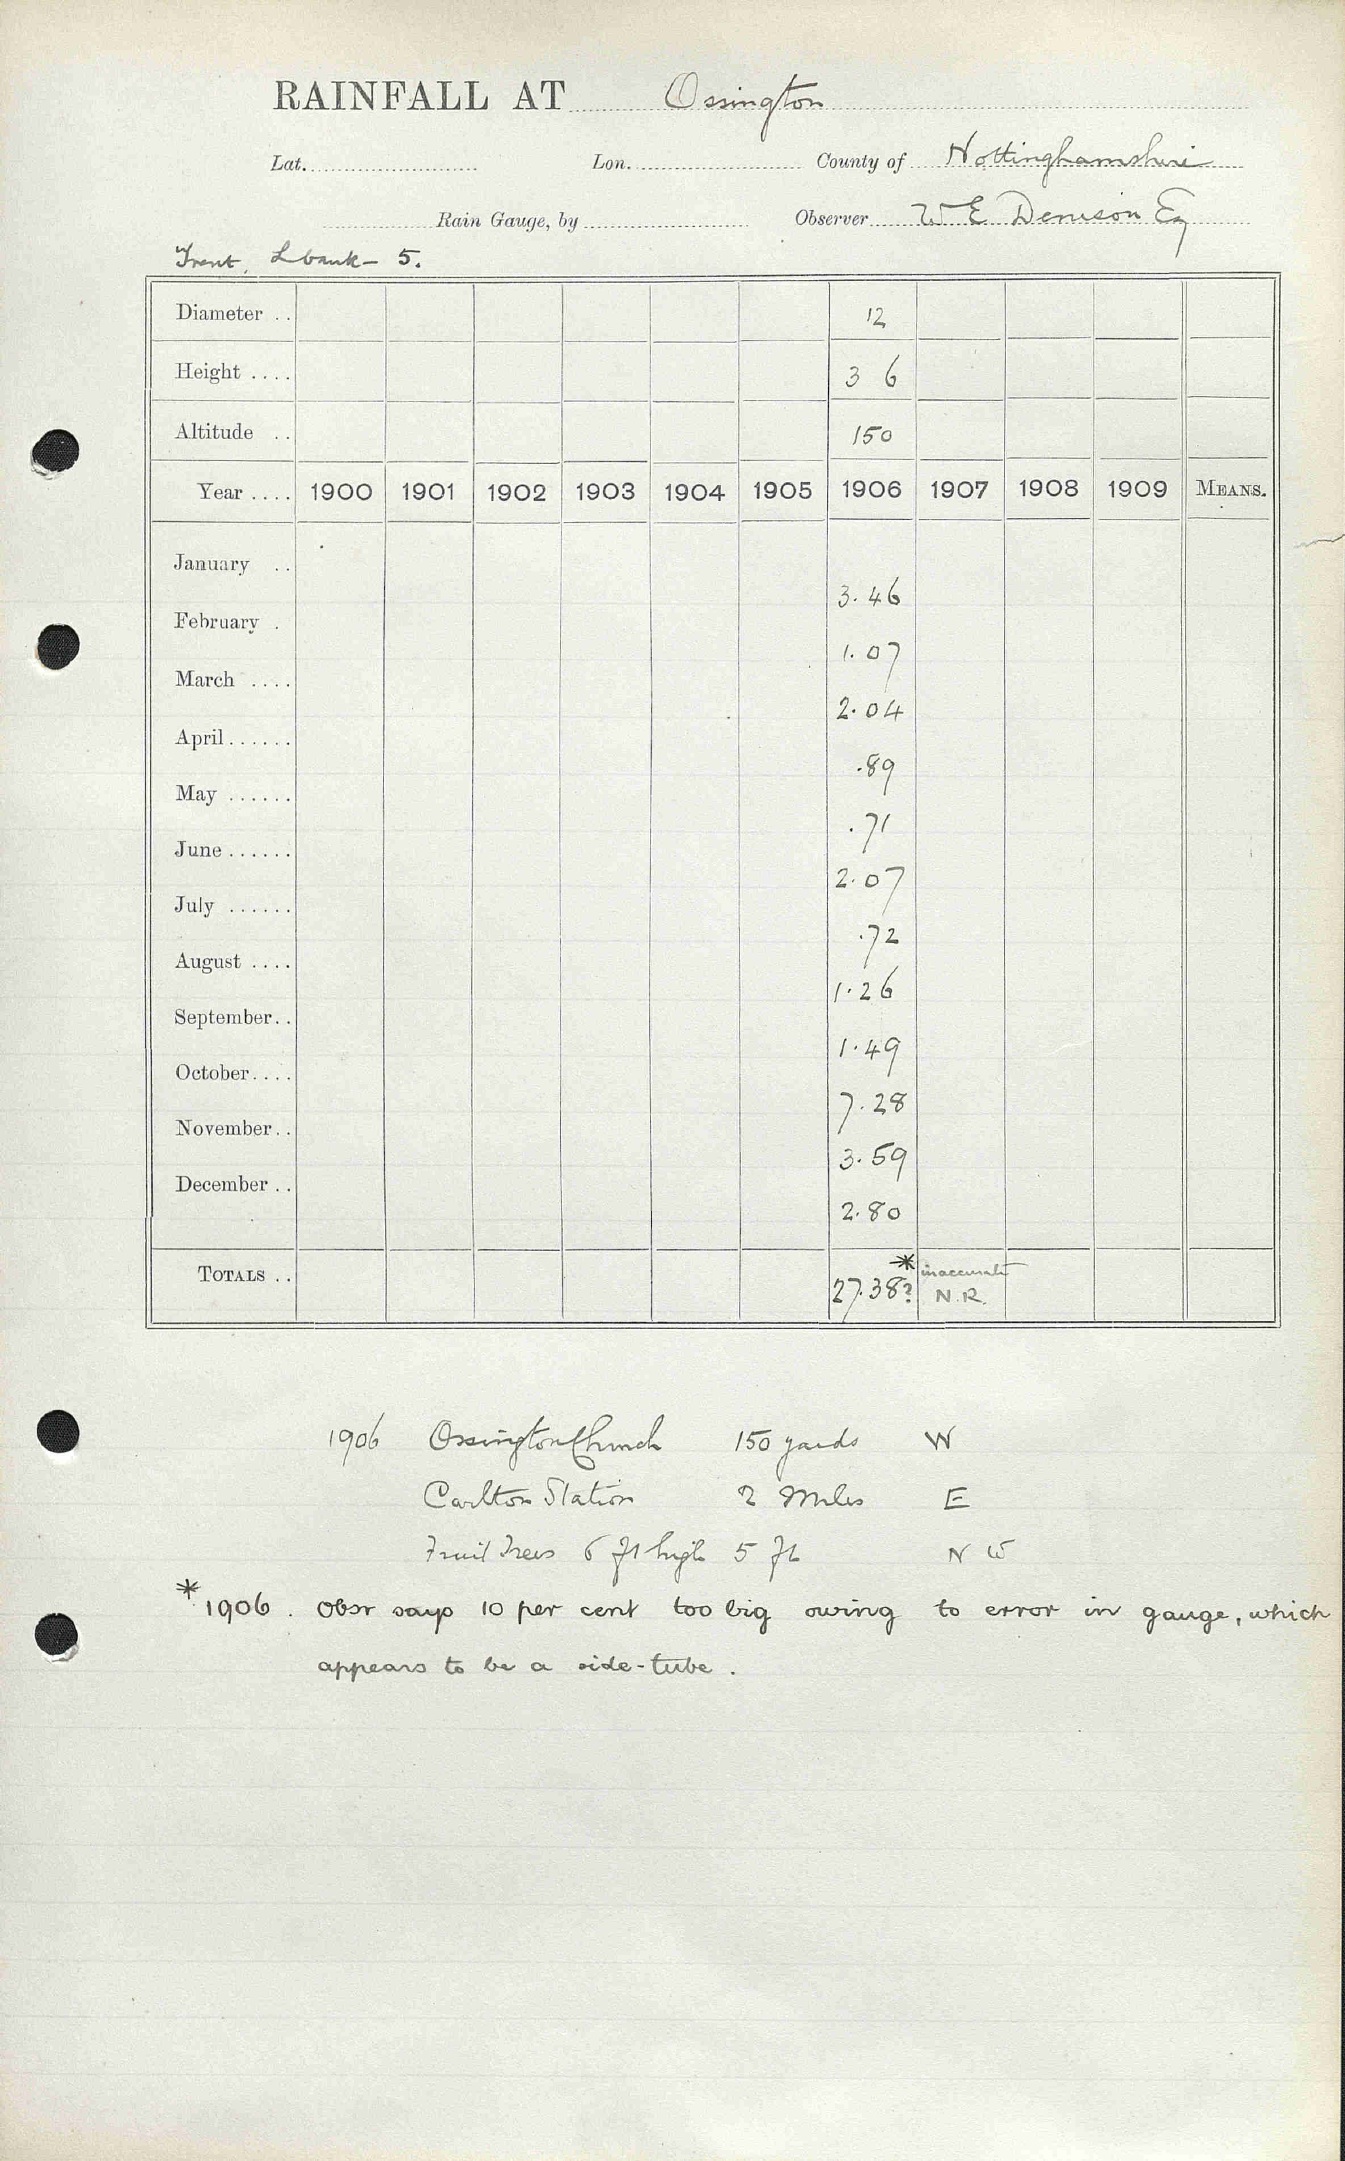 RAINFALL AT Ossington
Lat. Lon. County of Nottinghamshire
Rain Gauge, by Observer W E Denison Esq
Trent, L bank - 5.
Diameter .. 12
Height .... 3 6
Altitude .. 150
Year .... 1900 1901 1902 1903 1904 1905 1906 1907 1908 1909 MEANS.
January .. 3.46
February . 1.07
March .... 2.04
April ...... .89
May ...... .71
June ...... 2.07
July ...... .72
August .... 1.26
September.. 1.49
October.... 7.28
November.. 3.59
December .. 2.80
TOTALS .. 27.38? * inaccurate N.R.
1906 Ossington Church 150 yards W
Carlton Station 2 Miles E
Fruit Trees 6 ft high 5 ft N W
* 1906. Obsr says 10 per cent too big owing to error in gauge, which
appears to be a side-tube.